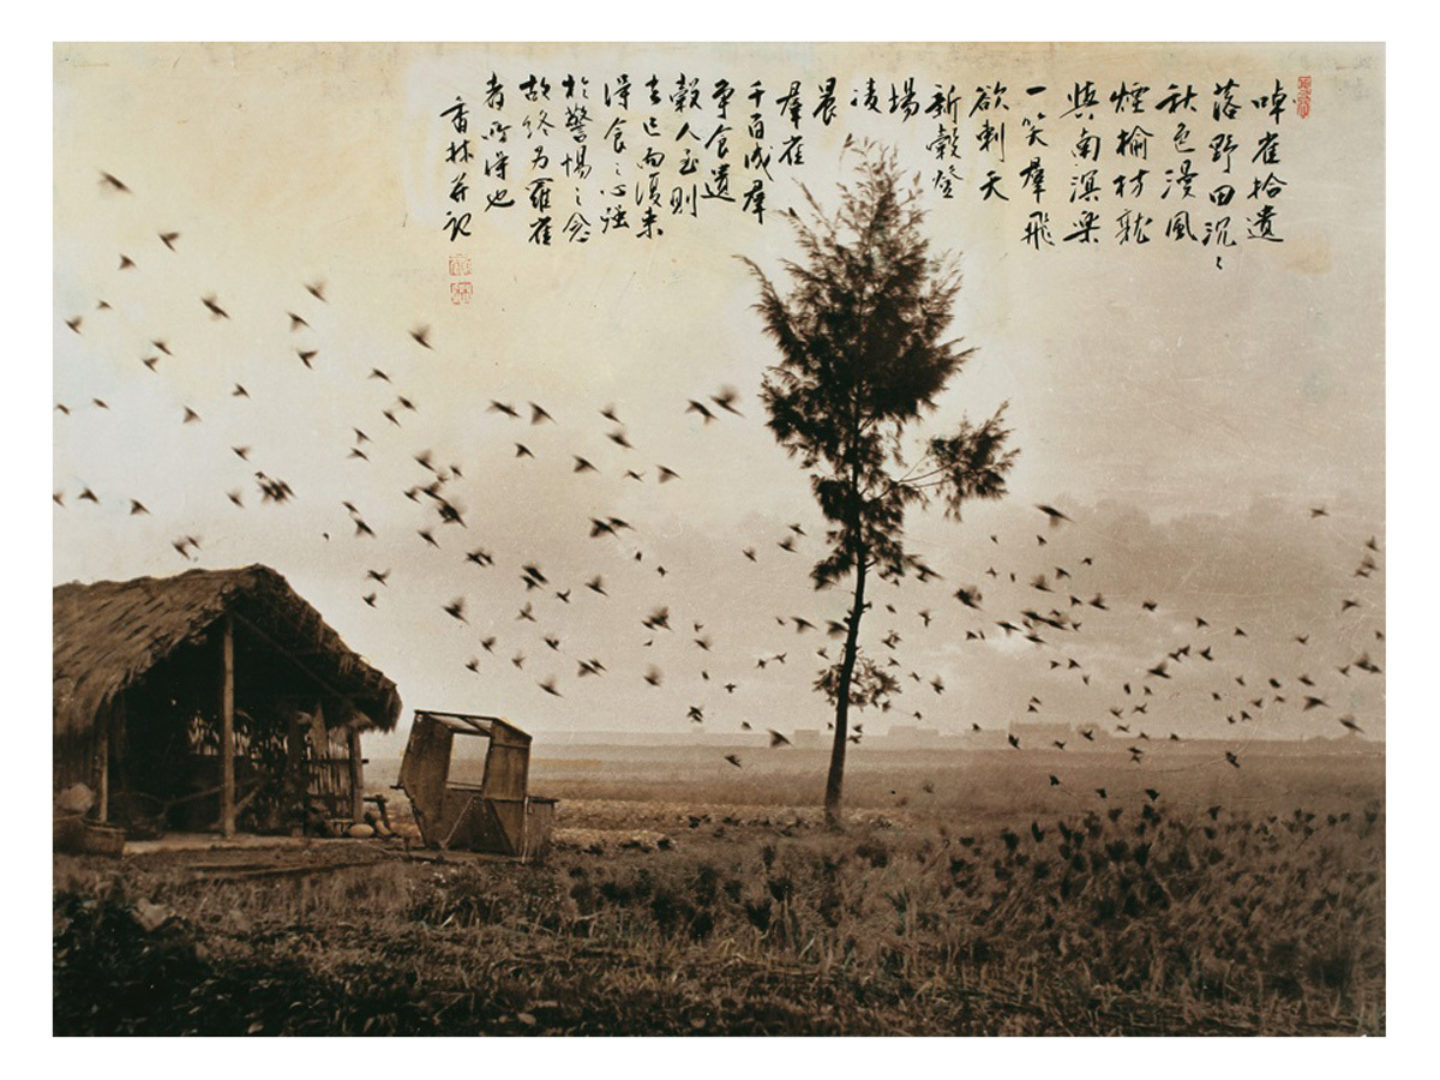 啅雀拾遺
落野田沉〻
秋色漫風
煙榆枋孰
與南溟樂
一笑羣飛
欲刺天
新穀登
場
凌
晨
羣雀
千百成羣
爭食遺
穀人至則
去已而復来
得食之心強
於警惕之念
故終為羅雀
者所得也
香林并記